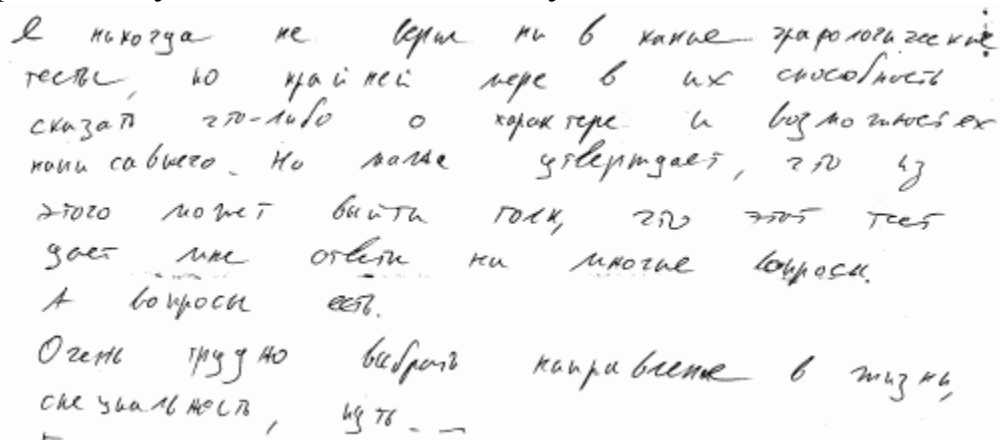 Я никогда не верил ни в какие графологические
тесты, по крайней мере в их способность
сказать что-либо о характере и возможностях
написавшего. Но мама утверждает, что из
этого может выйти толк, что этот тест
даст мне ответы на многие вопросы.
А вопросы есть.
Очень трудно выбрать направление в жизни,
специальность, путь...